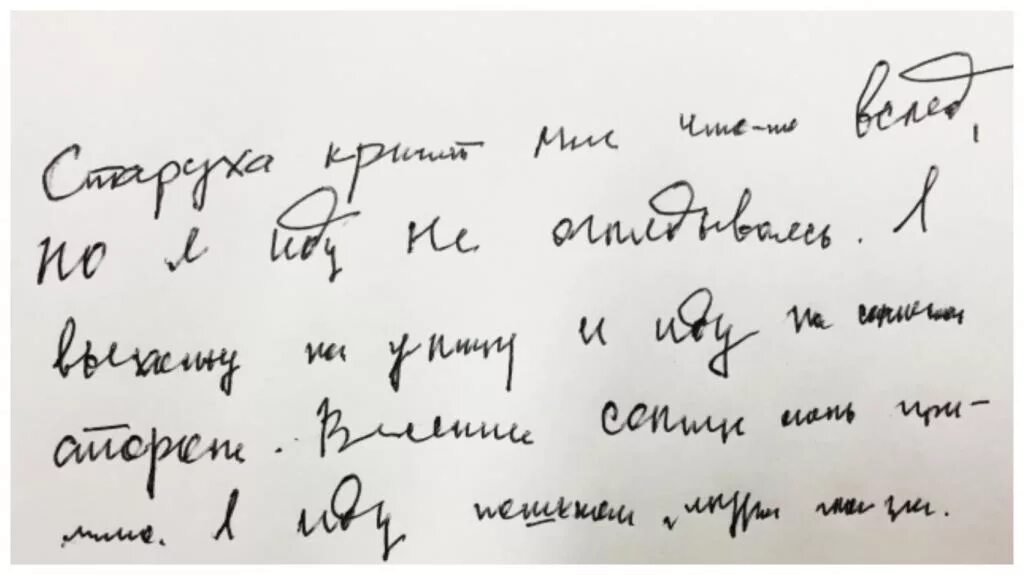 Старуха кричит мне что-то вслед,
но я иду не оглядываясь. Я
выхожу на улицу и иду по солнечной
стороне. Весеннее солнце очень при-
ятно. Я иду пешком,